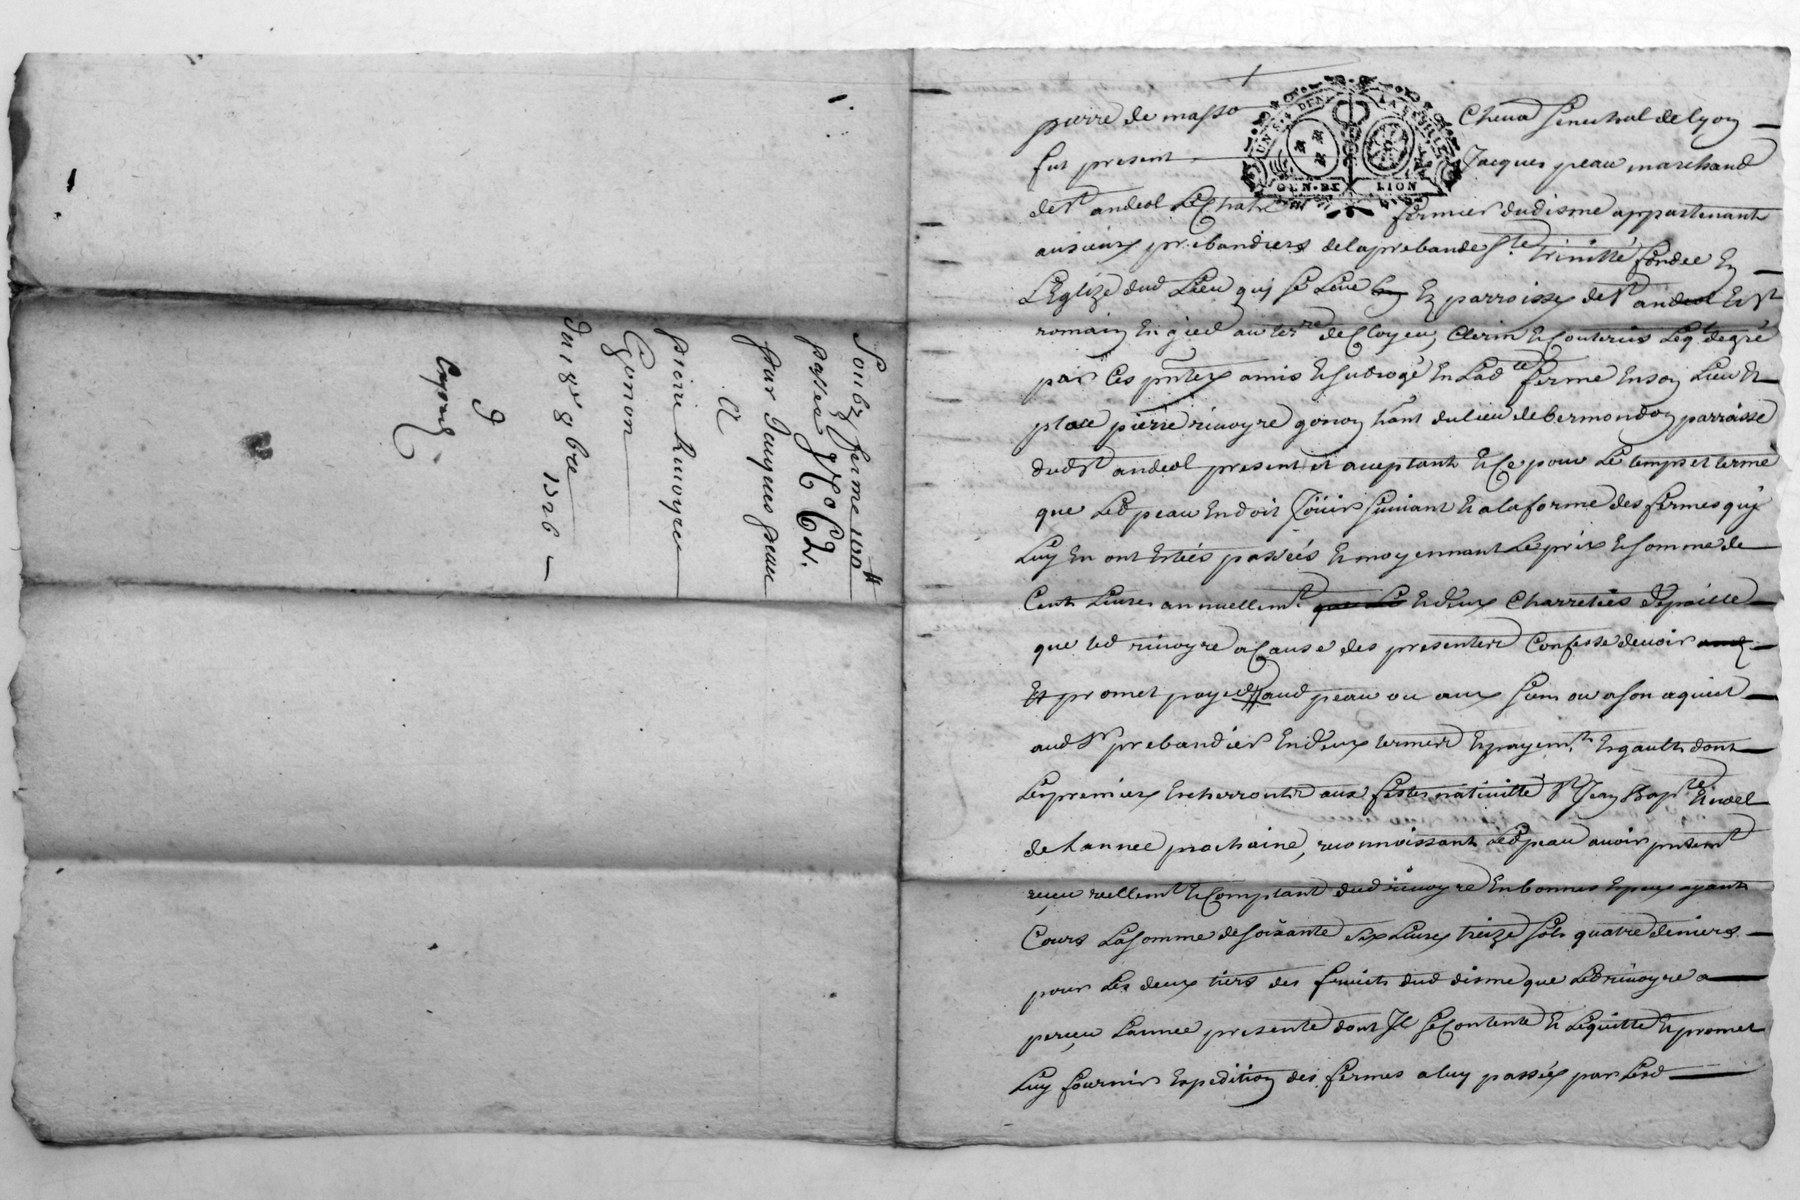 Soubz ferme 100#
passée
par Jacques peau
A
pierre Rivoyre
Gonon
Du 18e 8bre 1726
9
UN S. DEN. LA FEUILLE
GEN. DE LION
pierre de masso Chevad Senechal de lyon
fut present Jacques peau marchand
de St andeol Le Chateau fermier du disme appartenant
aux sieurs prebandiers de la prebande Ste trinitté fondée En
L'Eglize dud Lieu quy Se Leve En parroisses de St andeol Et St
romain En gied au terre de Cloyeu Clerin Et Couterieu Leql de gré
par Ces pntes a mis Et subrogé En Lad te ferme En son Lieu Et
place pierre rivoyre gonon habt du lieu de bermondon parroisse
dud St andeol present et aceptant Et Ce pour Le temps et terme
que Led peau En doit Joüir Suivant Et a la forme des fermes quy
Luy En ont Estés passées Et moyennant Le prix Et Somme de
Cent Livres annuellemt Et deux Charretées de paille
que led rivoyre a Cause des presentes Confesse devoir
Et promet payer aud peau ou aux Siens ou a Son aquict
aud Sr prebandier En deux termes Et payemts Egaults dont
Les premiers Echerront aux festes nativitté St Jean Bapte Et noel
de Lannée prochaine, reconnoissant Led peau avoir pntemt
reçeu reellemt Et Comptant dud rivoyre En bonnes Especes ayant
Cours La Somme de Soixante Six Livres treize Sols quatre deniers
pour Les deux tiers des fruicts dud disme que Led rivoyre a
perçeu Lannée presente dont Il Se Contente Et Lequitte Et promet
Luy fournir Expedition des fermes a luy passées par Lesd